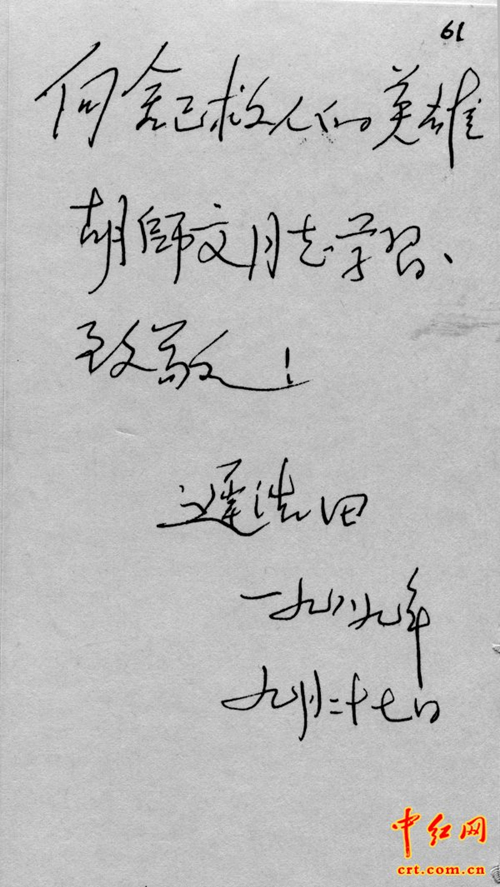 61
向舍己救人的英雄
胡師文同志学習、
致敬!
遲浩田
一九八九年
九月二十七日
中红网
crt.com.cn